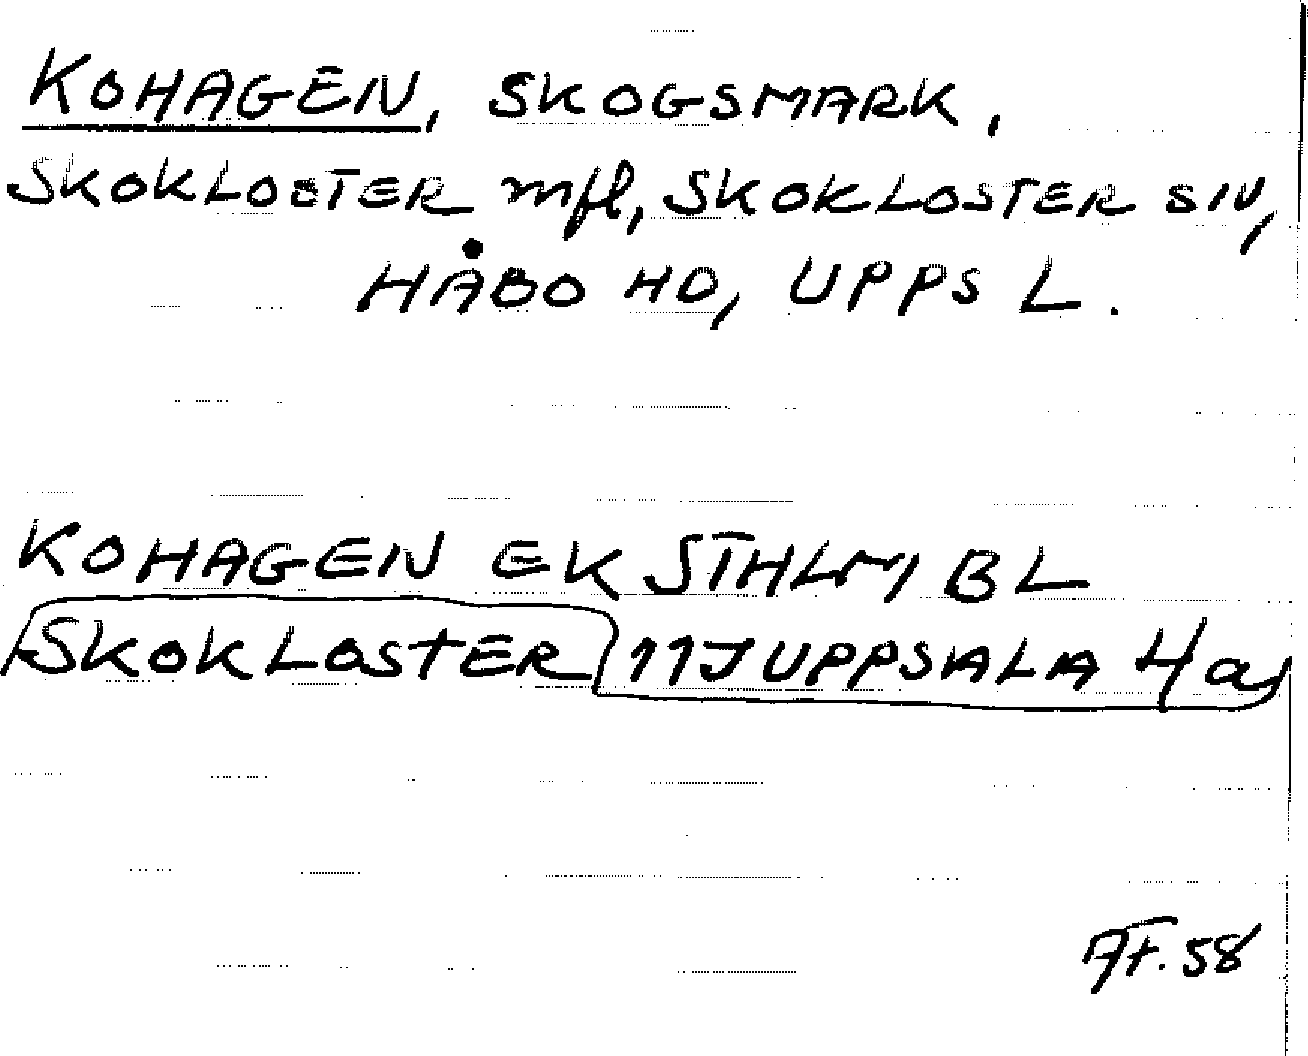 KOHAGEN, SKOGSMARK,
SKOKLOSTER mfl, SKOKLOSTER SN,
HÅBO HD, UPPS L.
KOHAGEN EK STHLM BL
SKOKLOSTER 11J UPPSALA 4a
58